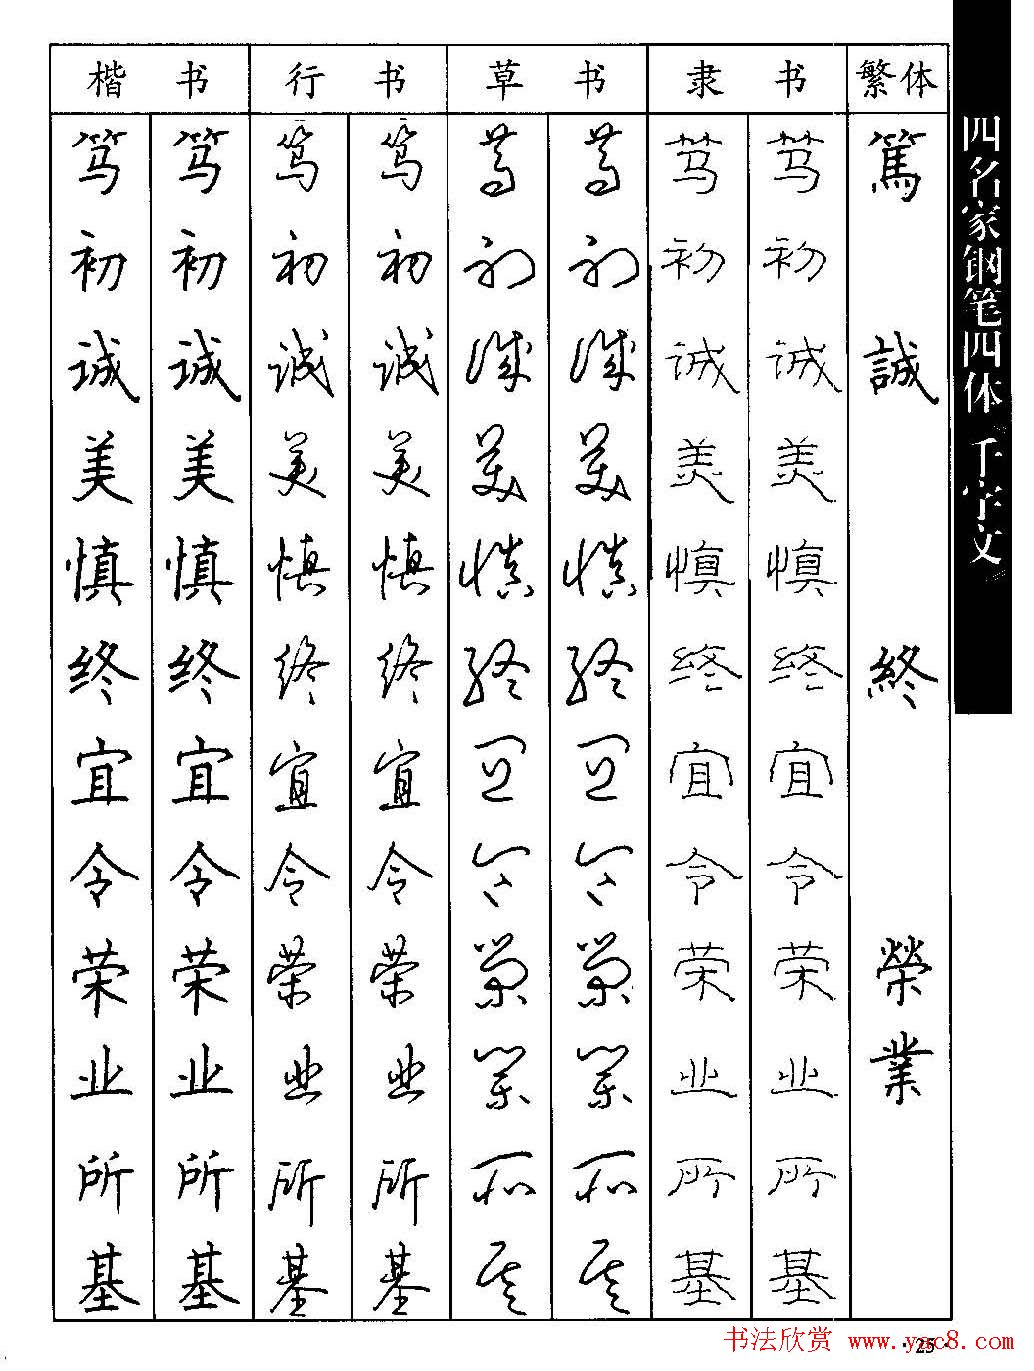 楷书 行书 草书 隶书 繁体
笃 笃 笃 笃 笃 笃 笃 笃 篤
初 初 初 初 初 初 初 初
诚 诚 诚 诚 诚 诚 诚 诚 誠
美 美 美 美 美 美 美 美
慎 慎 慎 慎 慎 慎 慎 慎
终 终 终 终 终 终 终 终 終
宜 宜 宜 宜 宜 宜 宜 宜
令 令 令 令 令 令 令 令
荣 荣 荣 荣 荣 荣 荣 荣 榮
业 业 业 业 業 業 业 业 業
所 所 所 所 所 所 所 所
基 基 基 基 基 基 基 基
四名家钢笔四体《千字文》
·25·
书法欣赏 www.yac8.com